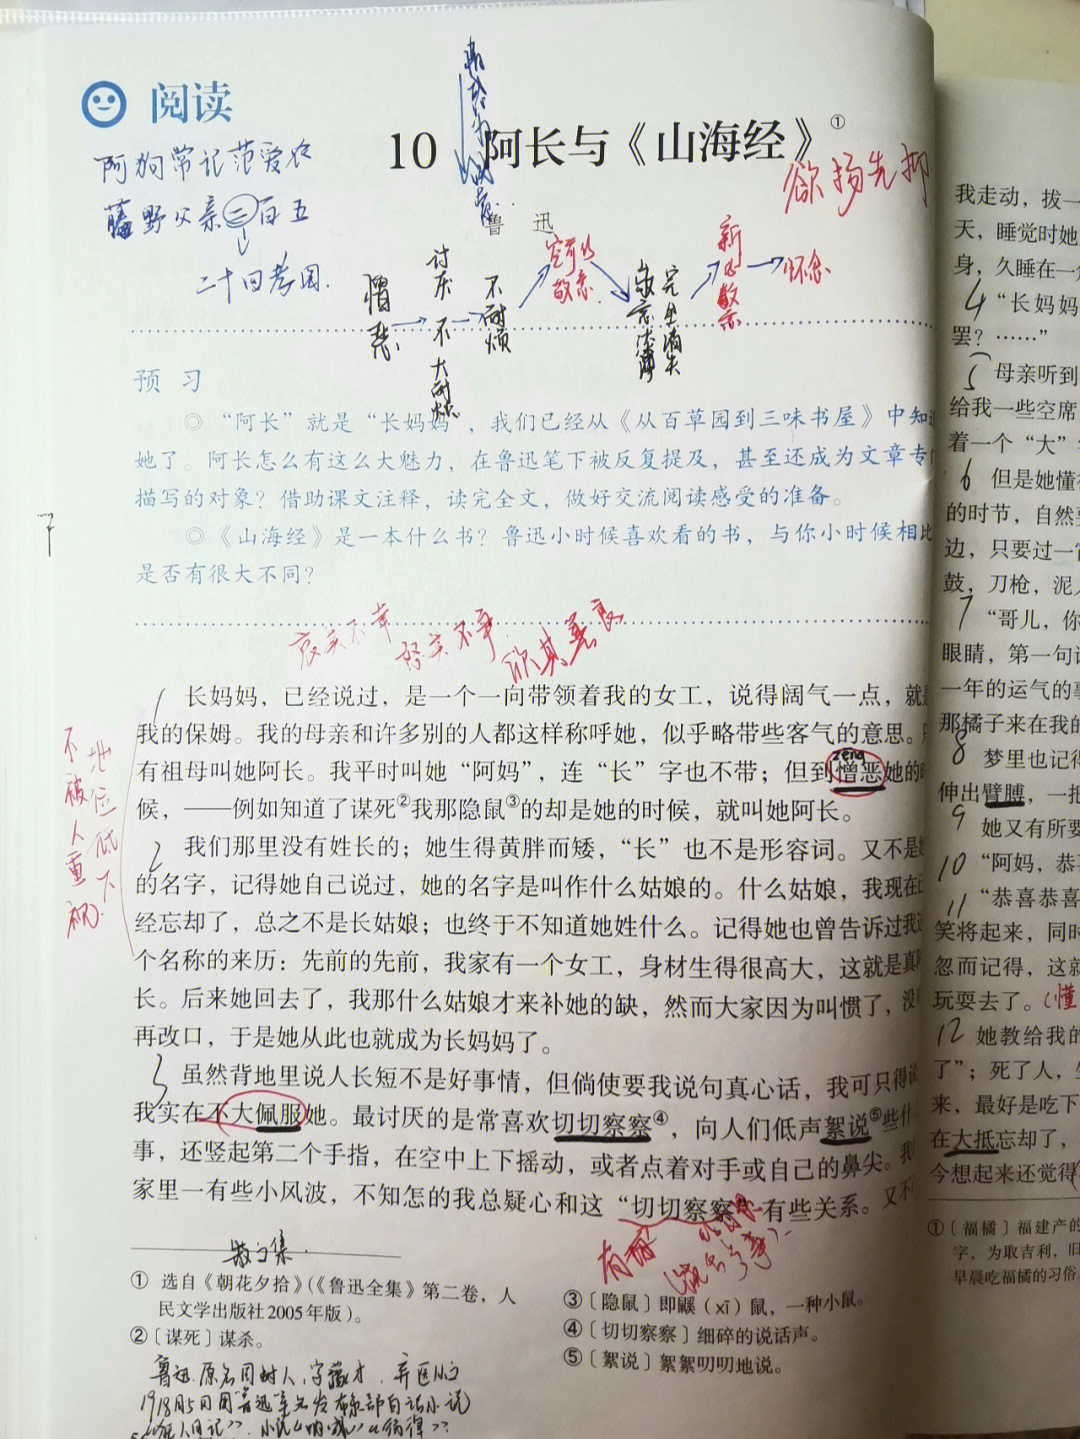 阅读
10 阿长与《山海经》①
鲁 迅
欲扬先抑
阿狗常记范爱农
藤野父亲二百五
二十四孝图
憎恶
讨厌 不大耐烦
不耐烦
空前的敬意
完全消失
新的敬意
怀念
预 习
◎ “阿长”就是“长妈妈”，我们已经从《从百草园到三味书屋》中知
她了。阿长怎么有这么大魅力，在鲁迅笔下被反复提及，甚至还成为文章专
描写的对象？借助课文注释，读完全文，做好交流阅读感受的准备。
◎《山海经》是一本什么书？鲁迅小时候喜欢看的书，与你小时候相比
是否有很大不同？
哀其不幸 怒其不争 欣其善良
1 长妈妈，已经说过，是一个一向带领着我的女工，说得阔气一点，就
我的保姆。我的母亲和许多别的人都这样称呼她，似乎略带些客气的意思。
zēng
有祖母叫她阿长。我平时叫她“阿妈”，连“长”字也不带；但到憎恶她的
候，——例如知道了谋死②我那隐鼠③的却是她的时候，就叫她阿长。
地位低下
不被人重视
2 我们那里没有姓长的；她生得黄胖而矮，“长”也不是形容词。又不是
的名字，记得她自己说过，她的名字是叫作什么姑娘的。什么姑娘，我现在
经忘却了，总之不是长姑娘；也终于不知道她姓什么。记得她也曾告诉过我
个名称的来历：先前的先前，我家有一个女工，身材生得很高大，这就是真
长。后来她回去了，我那什么姑娘才来补她的缺，然而大家因为叫惯了，没
再改口，于是她从此也就成为长妈妈了。
3 虽然背地里说人长短不是好事情，但倘使要我说句真心话，我可只得
我实在不大佩服她。最讨厌的是常喜欢切切察察④，向人们低声絮说⑤些什
事，还竖起第二个手指，在空中上下摇动，或者点着对手或自己的鼻尖。
家里一有些小风波，不知怎的我总疑心和这“切切察察”有些关系。又不
散文集
① 选自《朝花夕拾》（《鲁迅全集》第二卷，人
民文学出版社2005年版）。
②〔谋死〕谋杀。
③〔隐鼠〕即鼷（xī）鼠，一种小鼠。
④〔切切察察〕细碎的说话声。
⑤〔絮说〕絮絮叨叨地说。
鲁迅 原名周树人 字豫才 弃医从文
1918年5月用“鲁迅”笔名发布首部白话小说
《狂人日记》 小说《呐喊》《彷徨》
我走动，拔
天，睡觉时她
身，久睡在一
4 “长妈妈
罢？……”
5 母亲听到
给我一些空席
着一个“大”
6 但是她懂
的时节，自然
边，只要过一
鼓，刀枪，泥
7 “哥儿，你
眼睛，第一句
一年的运气的
那橘子来在我的
8 梦里也记
伸出臂膊，一把
9 她又有所要
10 “阿妈，恭
11 “恭喜恭喜
笑将起来，同时
忽而记得，这就
玩耍去了。（懂
12 她教给我的
了”；死了人，
来，最好是吃下
在大抵忘却了，
今想起来还觉得
①〔福橘〕福建产的
字，为取吉利，旧
早晨吃福橘的习俗